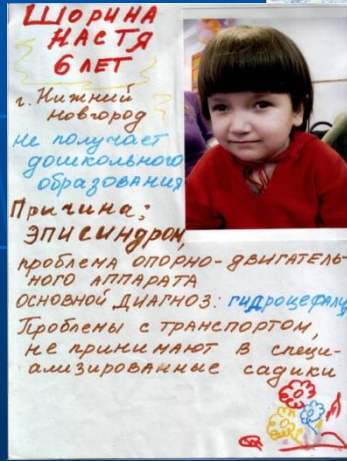 ШОРИНА
НАСТЯ
6 ЛЕТ
г. Нижний
Новгород
Не получает
дошкольного
образования
Причина:
ЭПИСИНДРОМ,
проблема опорно-двигатель-
ного аппарата
основной диагноз: гидроцефалия
Проблемы с транспортом,
не принимают в специ-
ализированные садики